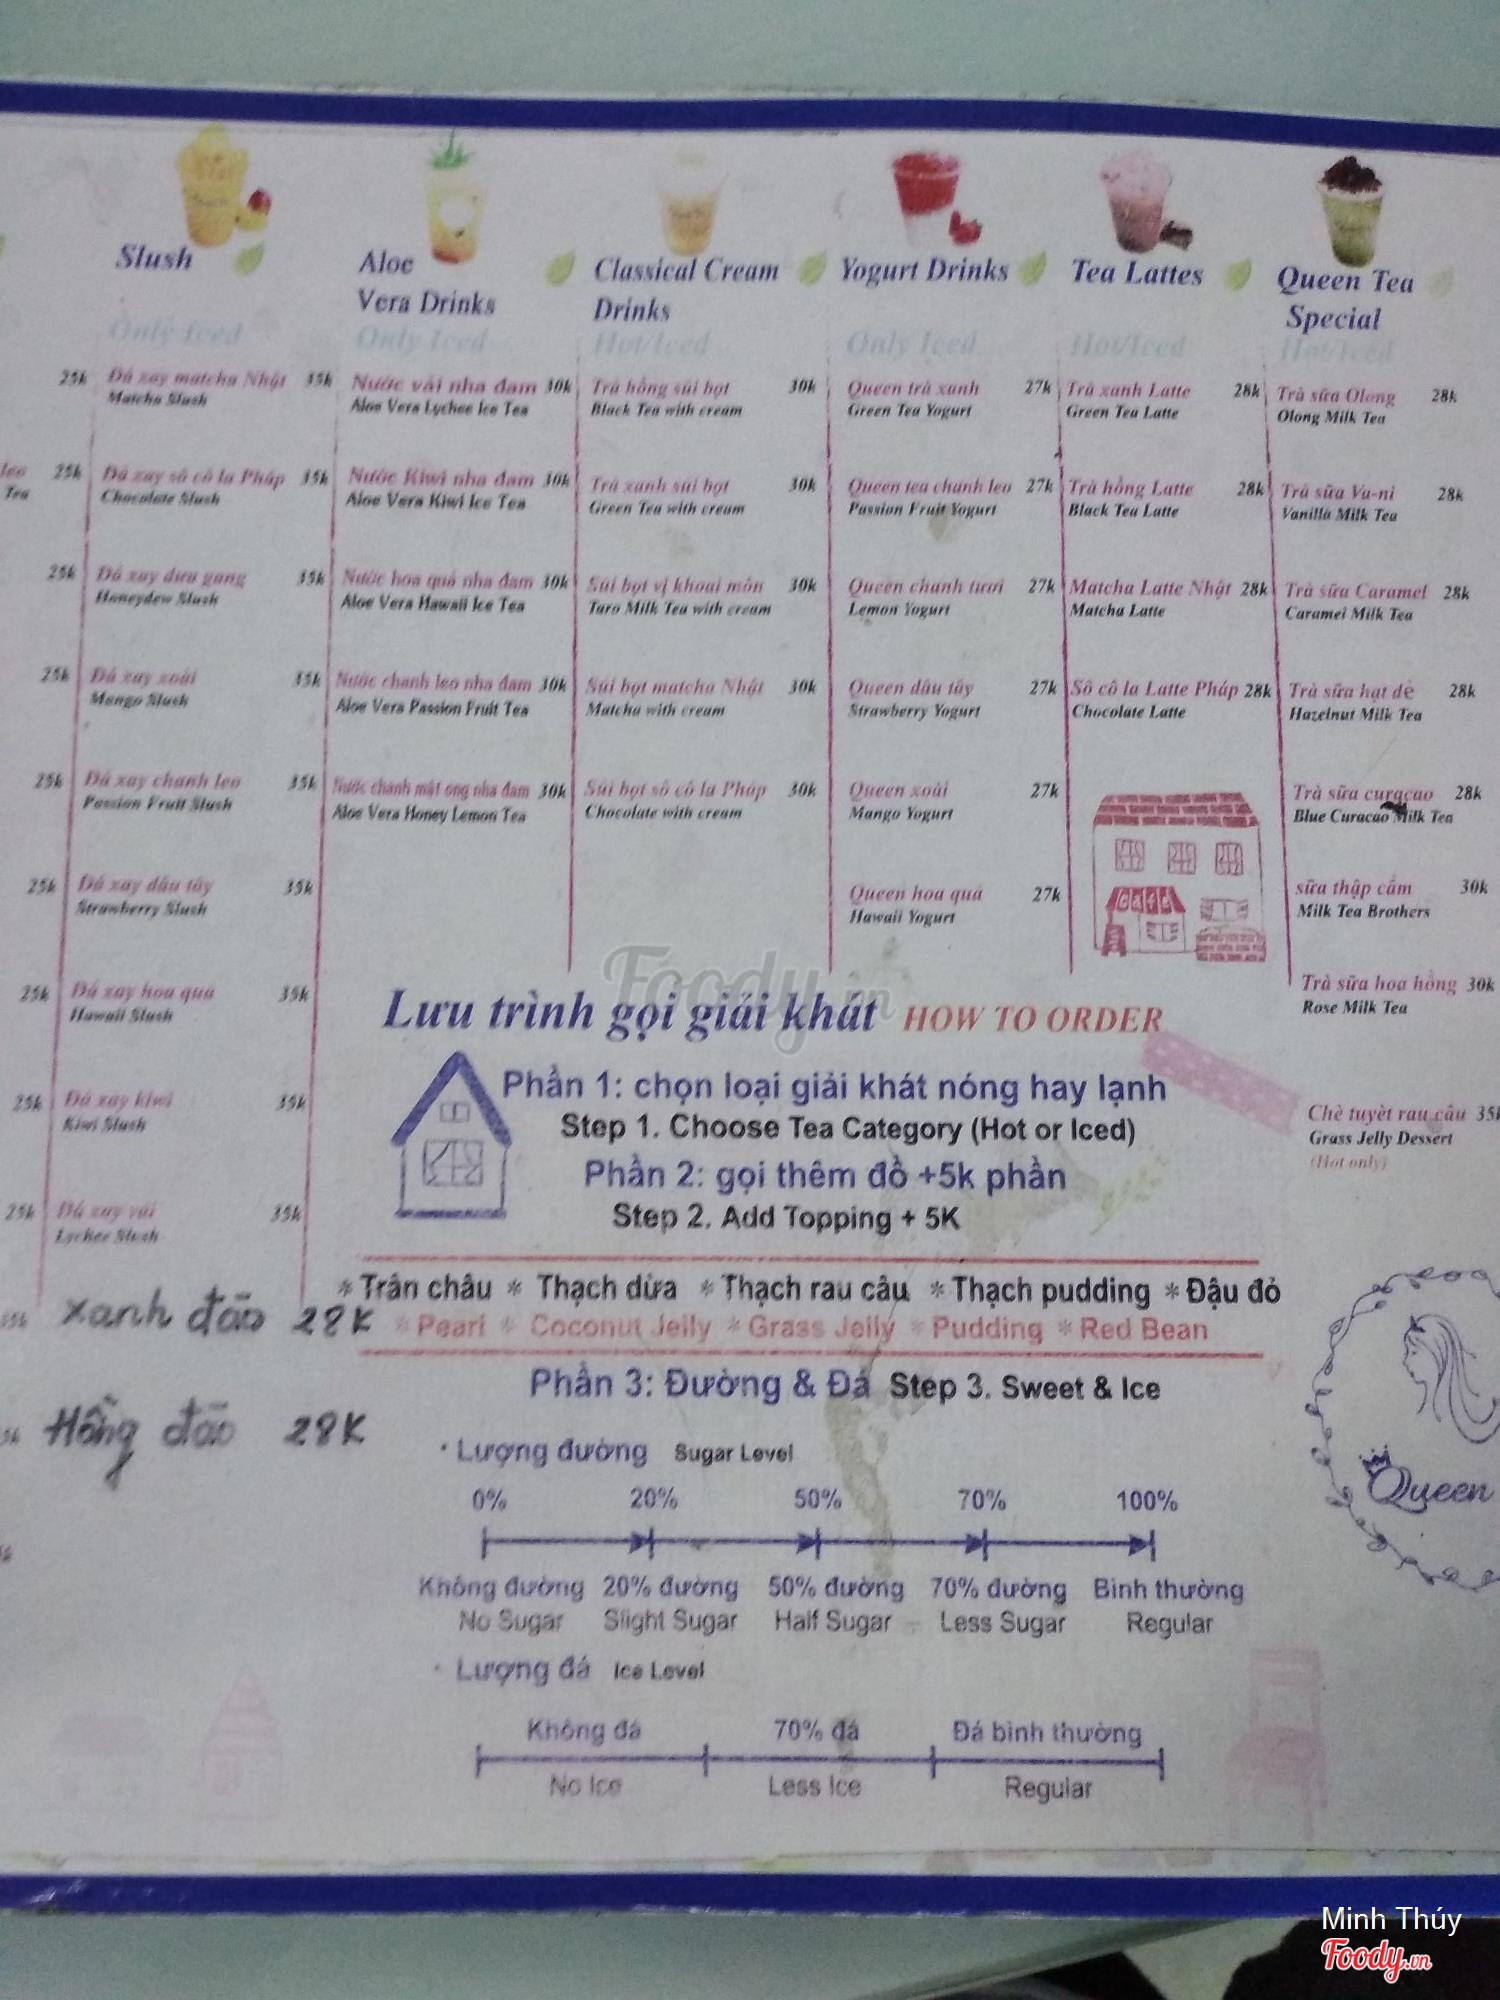 Slush
Only Iced
25k
Đá xay matcha Nhật 35k
Matcha Slush
leo 25k
Tea
Đá xay sô cô la Pháp 35k
Chocolate Slush
25k
Đá xay dưa gang 35k
Honeydew Slush
25k
Đá xay xoài 35k
Mango Slush
25k
Đá xay chanh leo 35k
Passion Fruit Slush
25k
Đá xay dâu tây 35k
Strawberry Slush
25k
Đá xay hoa quả 35k
Hawaii Slush
25k
Đá xay kiwi 35k
Kiwi Slush
25k
Đá xay vải 35k
Lychee Slush
xanh đào 28K
Hồng đào 28K
Aloe
Vera Drinks
Only Iced
Nước vải nha đam 30k
Aloe Vera Lychee Ice Tea
Nước Kiwi nha đam 30k
Aloe Vera Kiwi Ice Tea
Nước hoa quả nha đam 30k
Aloe Vera Hawaii Ice Tea
Nước chanh leo nha đam 30k
Aloe Vera Passion Fruit Tea
Nước chanh mật ong nha đam 30k
Aloe Vera Honey Lemon Tea
Classical Cream
Drinks
Hot/Iced
Trà hồng sủi bọt 30k
Black Tea with cream
Trà xanh sủi bọt 30k
Green Tea with cream
Sủi bọt vị khoai môn 30k
Taro Milk Tea with cream
Sủi bọt matcha Nhật 30k
Matcha with cream
Sủi bọt sô cô la Pháp 30k
Chocolate with cream
Yogurt Drinks
Only Iced
Queen trà xanh 27k
Green Tea Yogurt
Queen tea chanh leo 27k
Passion Fruit Yogurt
Queen chanh tươi 27k
Lemon Yogurt
Queen dâu tây 27k
Strawberry Yogurt
Queen xoài 27k
Mango Yogurt
Queen hoa quả 27k
Hawaii Yogurt
Tea Lattes
Hot/Iced
Trà xanh Latte 28k
Green Tea Latte
Trà hồng Latte 28k
Black Tea Latte
Matcha Latte Nhật 28k
Matcha Latte
Sô cô la Latte Pháp 28k
Chocolate Latte
Cafe
Queen Tea
Special
Hot/Iced
Trà sữa Olong 28k
Olong Milk Tea
Trà sữa Va-ni 28k
Vanilla Milk Tea
Trà sữa Caramel 28k
Caramel Milk Tea
Trà sữa hạt dẻ 28k
Hazelnut Milk Tea
Trà sữa curaçao 28k
Blue Curacao Milk Tea
sữa thập cẩm 30k
Milk Tea Brothers
Trà sữa hoa hồng 30k
Rose Milk Tea
Chè tuyết rau câu 35k
Grass Jelly Dessert
(Hot only)
Foody.vn
Lưu trình gọi giải khát HOW TO ORDER
Phần 1: chọn loại giải khát nóng hay lạnh
Step 1. Choose Tea Category (Hot or Iced)
Phần 2: gọi thêm đồ +5k phần
Step 2. Add Topping + 5K
* Trân châu * Thạch dừa * Thạch rau câu * Thạch pudding * Đậu đỏ
* Pearl * Coconut Jelly * Grass Jelly * Pudding * Red Bean
Phần 3: Đường & Đá Step 3. Sweet & Ice
· Lượng đường Sugar Level
0% 20% 50% 70% 100%
Không đường 20% đường 50% đường 70% đường Bình thường
No Sugar Slight Sugar Half Sugar Less Sugar Regular
· Lượng đá Ice Level
Không đá 70% đá Đá bình thường
No Ice Less Ice Regular
Queen
Minh Thúy
Foody.vn